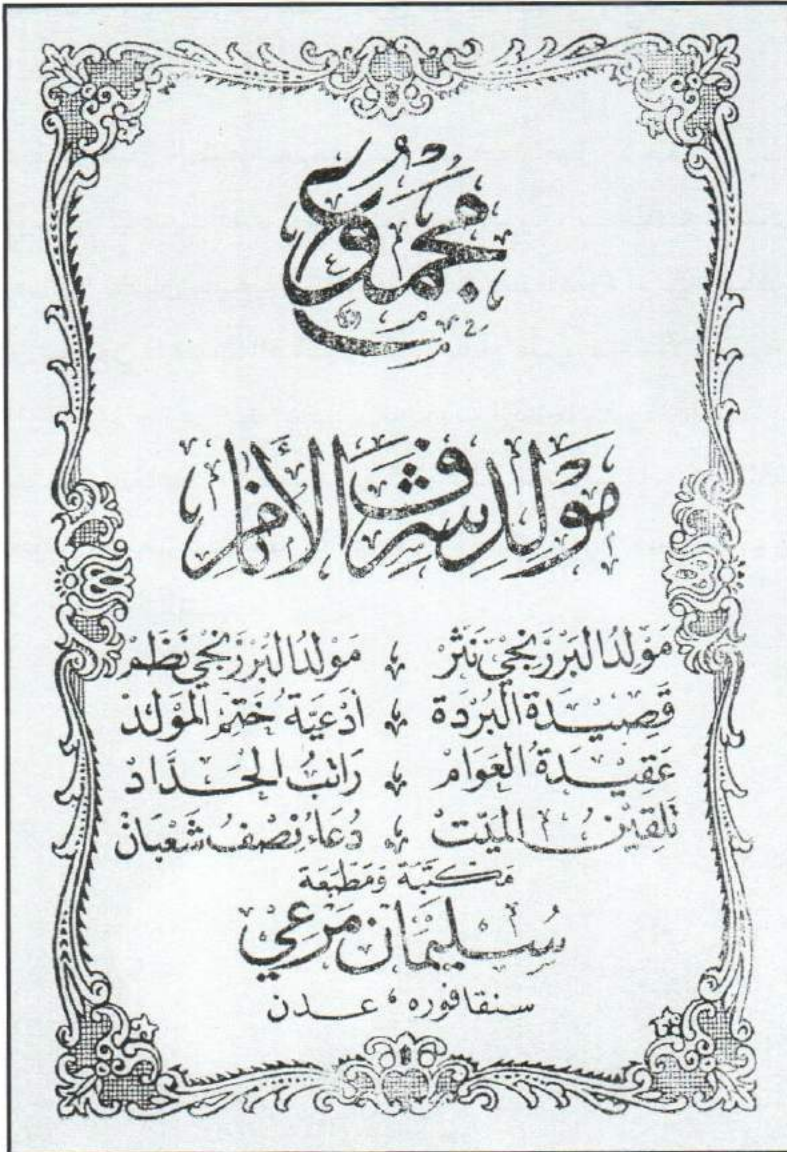 مجموع
مَوْلِد شَرَفُ الأَنَامِ
مَوْلِدُ البَرْزَنْجِيّ نَثْرْ ، مَوْلِدُ البَرْزَنْجِي نَظَمْ
قَصِيدَة البُرْدَة ، أَدْعِيَة خَتْمِ المَوْلِدْ
عَقِيدَةُ العَوَامْ ، رَاتِبُ الحَدَّادْ
تَلْقِيْنُ المَيِّتْ ، دُعَاءُ نِصْفُ شَعْبَانْ
مَكتَبَة وَمَطبَعَة
سُلِيمَان مَرْعِي
سنقافوره ، عدن